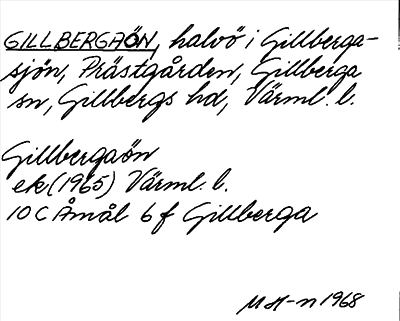 GILLBERGAÖN, halvö i Gillberga-
sjön, Prästgården, Gillberga
sn, Gillbergs hd, Värml. l.
Gillbergaön
ek (1965) Värml. l.
10 C Åmål 6 f Gillberga
MH-n 1968